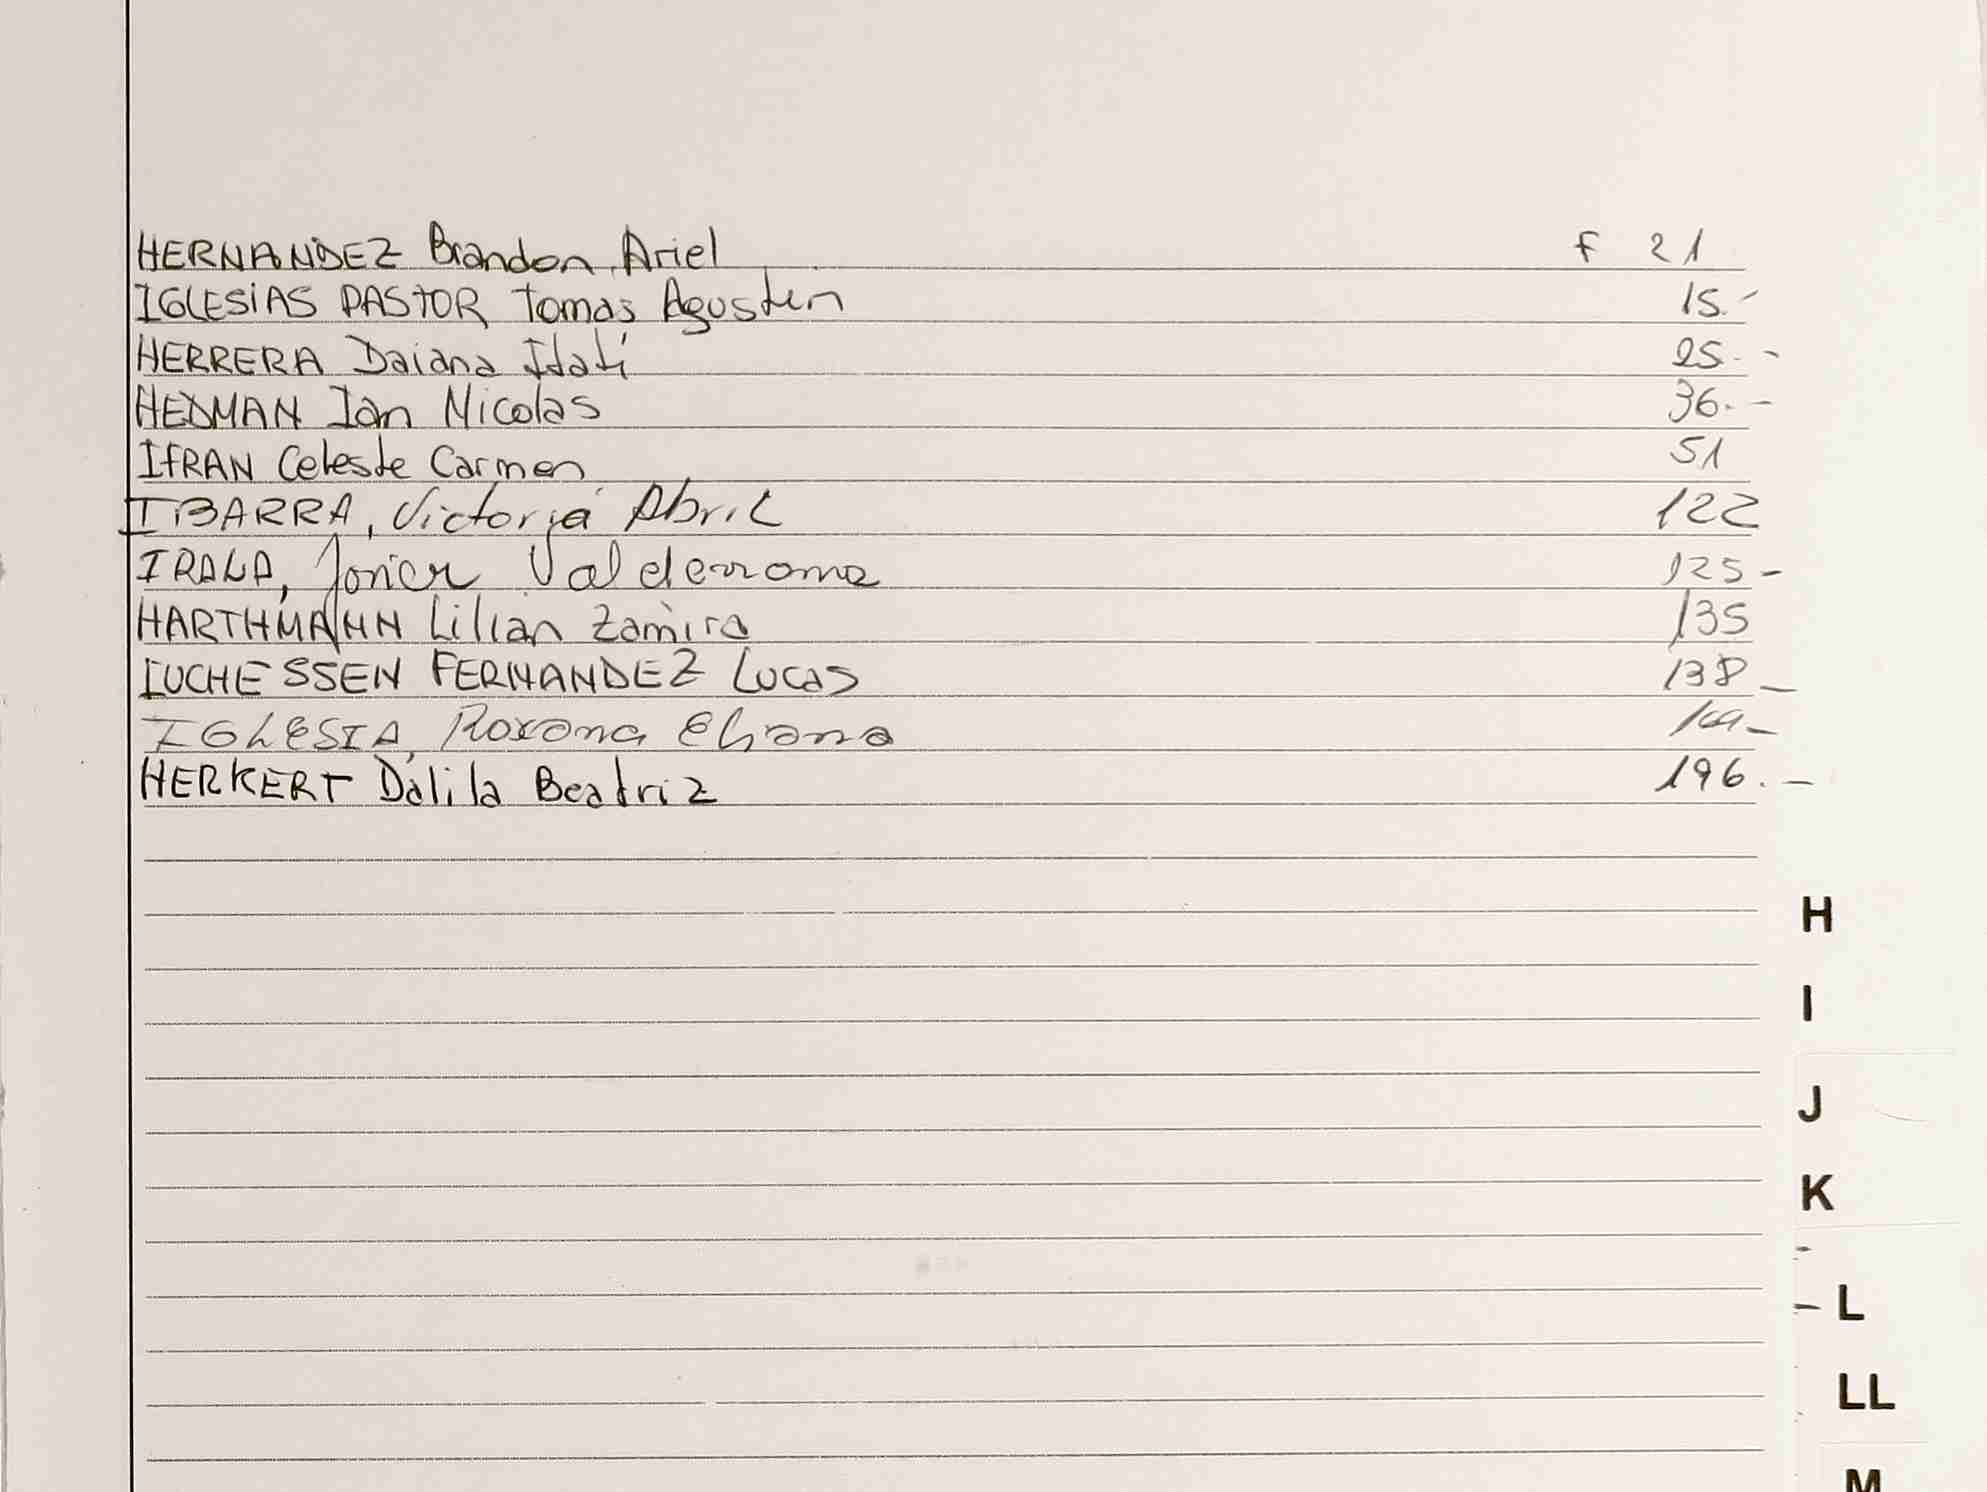 HERNANDEZ Brandon Ariel F 21
IGLESIAS PASTOR Tomas Agustin 15.-
HERRERA Daiana Itati 25.-
HEDMAN Ian Nicolas 36.-
IFRAN Celeste Carmen 51
IBARRA, Victoria Abril 122
IRALA, Javier Valderrama 125-
HARTHMANN Lilian Zamira 135
IUCHESSEN FERNANDEZ Lucas 138_
IGLESIA, Roxana Eliana
HERKERT Dalila Beatriz 196.-
H
I
J
K
L
LL
M